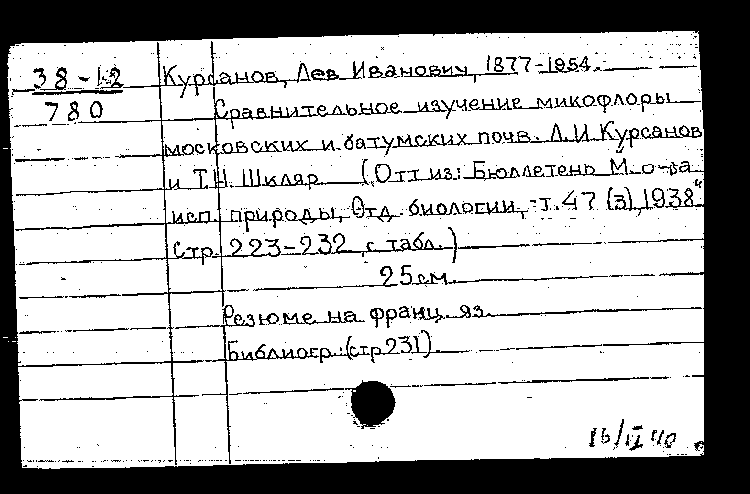 38-12
780
Курсанов, Лев Иванович, 1877-1954.
Сравнительное изучение микофлоры
московских и батумских почв. Л.И. Курсанов
и Т.Н. Шкляр. (Отт из: Бюллетень М. о-ва
исп. природы, Отд. биологии, т. 47 (3), 1938"
Стр. 223-232 с табл.)
25 см.
Резюме на франц. яз.
Библиогр.: (стр 231)
16/II 40